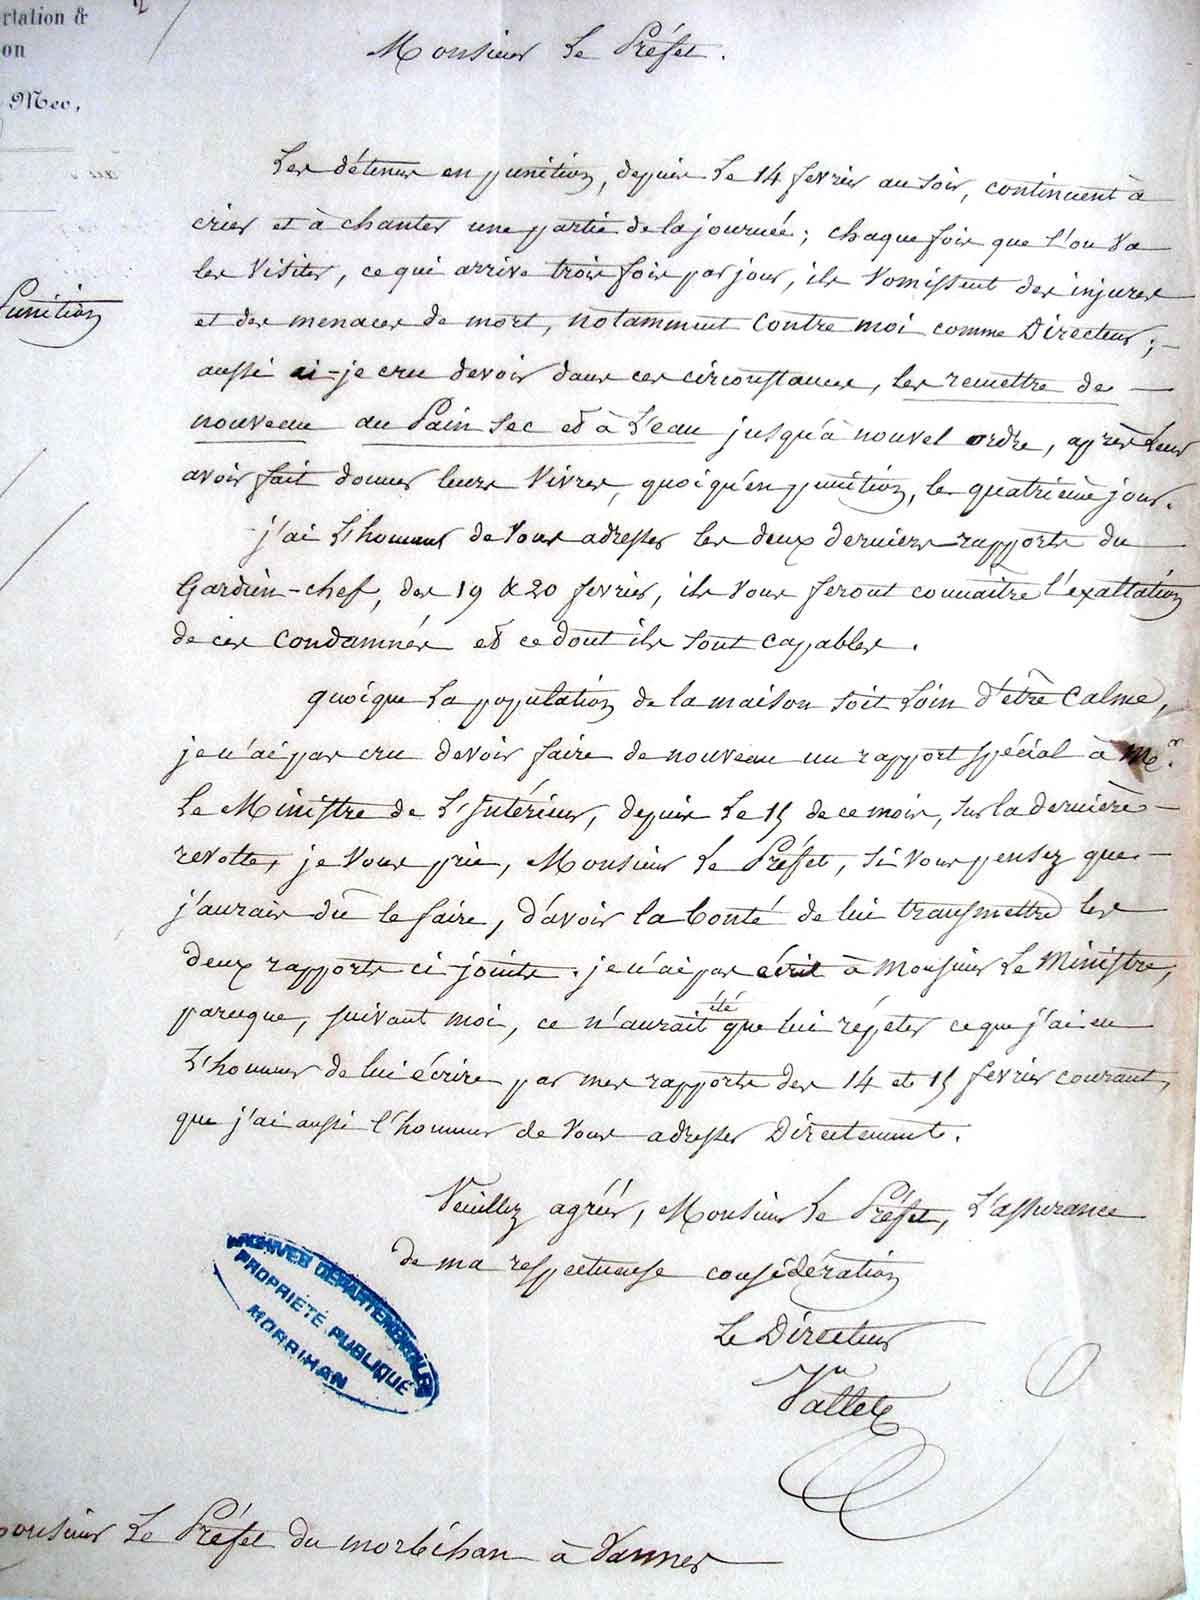 rtation &
on
Mer,
Punition
Monsieur Le Préfet.
Les détenus en punition, depuis Le 14 fevrier au soir, continuent à
crier et à chanter une partie de la journée ; chaque fois que l'on va
les visiter, ce qui arrive trois fois par jour, ils vomissent des injures
et des menaces de mort, notamment contre moi comme Directeur ; -
aussi ai-je cru devoir dans ces circonstances, les remettre de -
nouveau au Pain sec et à l'eau jusqu'à nouvel ordre, après leur
avoir fait donner leurs vivres, quoiqu'en punition, le quatrième jour.
j'ai l'honneur de vous adresser les deux derniers rapports du
Gardien-chef, des 19 & 20 fevrier, ils vous feront connaitre l'exaltation
de ces condamnés et ce dont ils sont capables.
quoique la population de la maison soit loin d'être calme,
je n'ai pas cru devoir faire de nouveau un rapport spécial à Mr.
Le Ministre de L'Intérieur, depuis Le 15 de ce mois, sur la dernière -
revolte, je vous prie, Monsieur Le Préfet, si vous pensez que -
j'aurais dû le faire, d'avoir la bonté de lui transmettre les
deux rapports ci joints. je n'ai pas écrit à Monsieur Le Ministre,
parceque, suivant moi, ce n'aurait été que lui répéter ce que j'ai eu
L'honneur de lui écrire par mes rapports des 14 et 15 fevrier courant,
que j'ai aussi l'honneur de vous adresser Directement.
Veuillez agréer, Monsieur Le Préfet, L'assurance
de ma respectueuse considération
Le Directeur
Vallet
ARCHIVES DÉPARTEMENTALES
PROPRIÉTÉ PUBLIQUE
MORBIHAN
onsieur Le Préfet du morbihan à Vannes